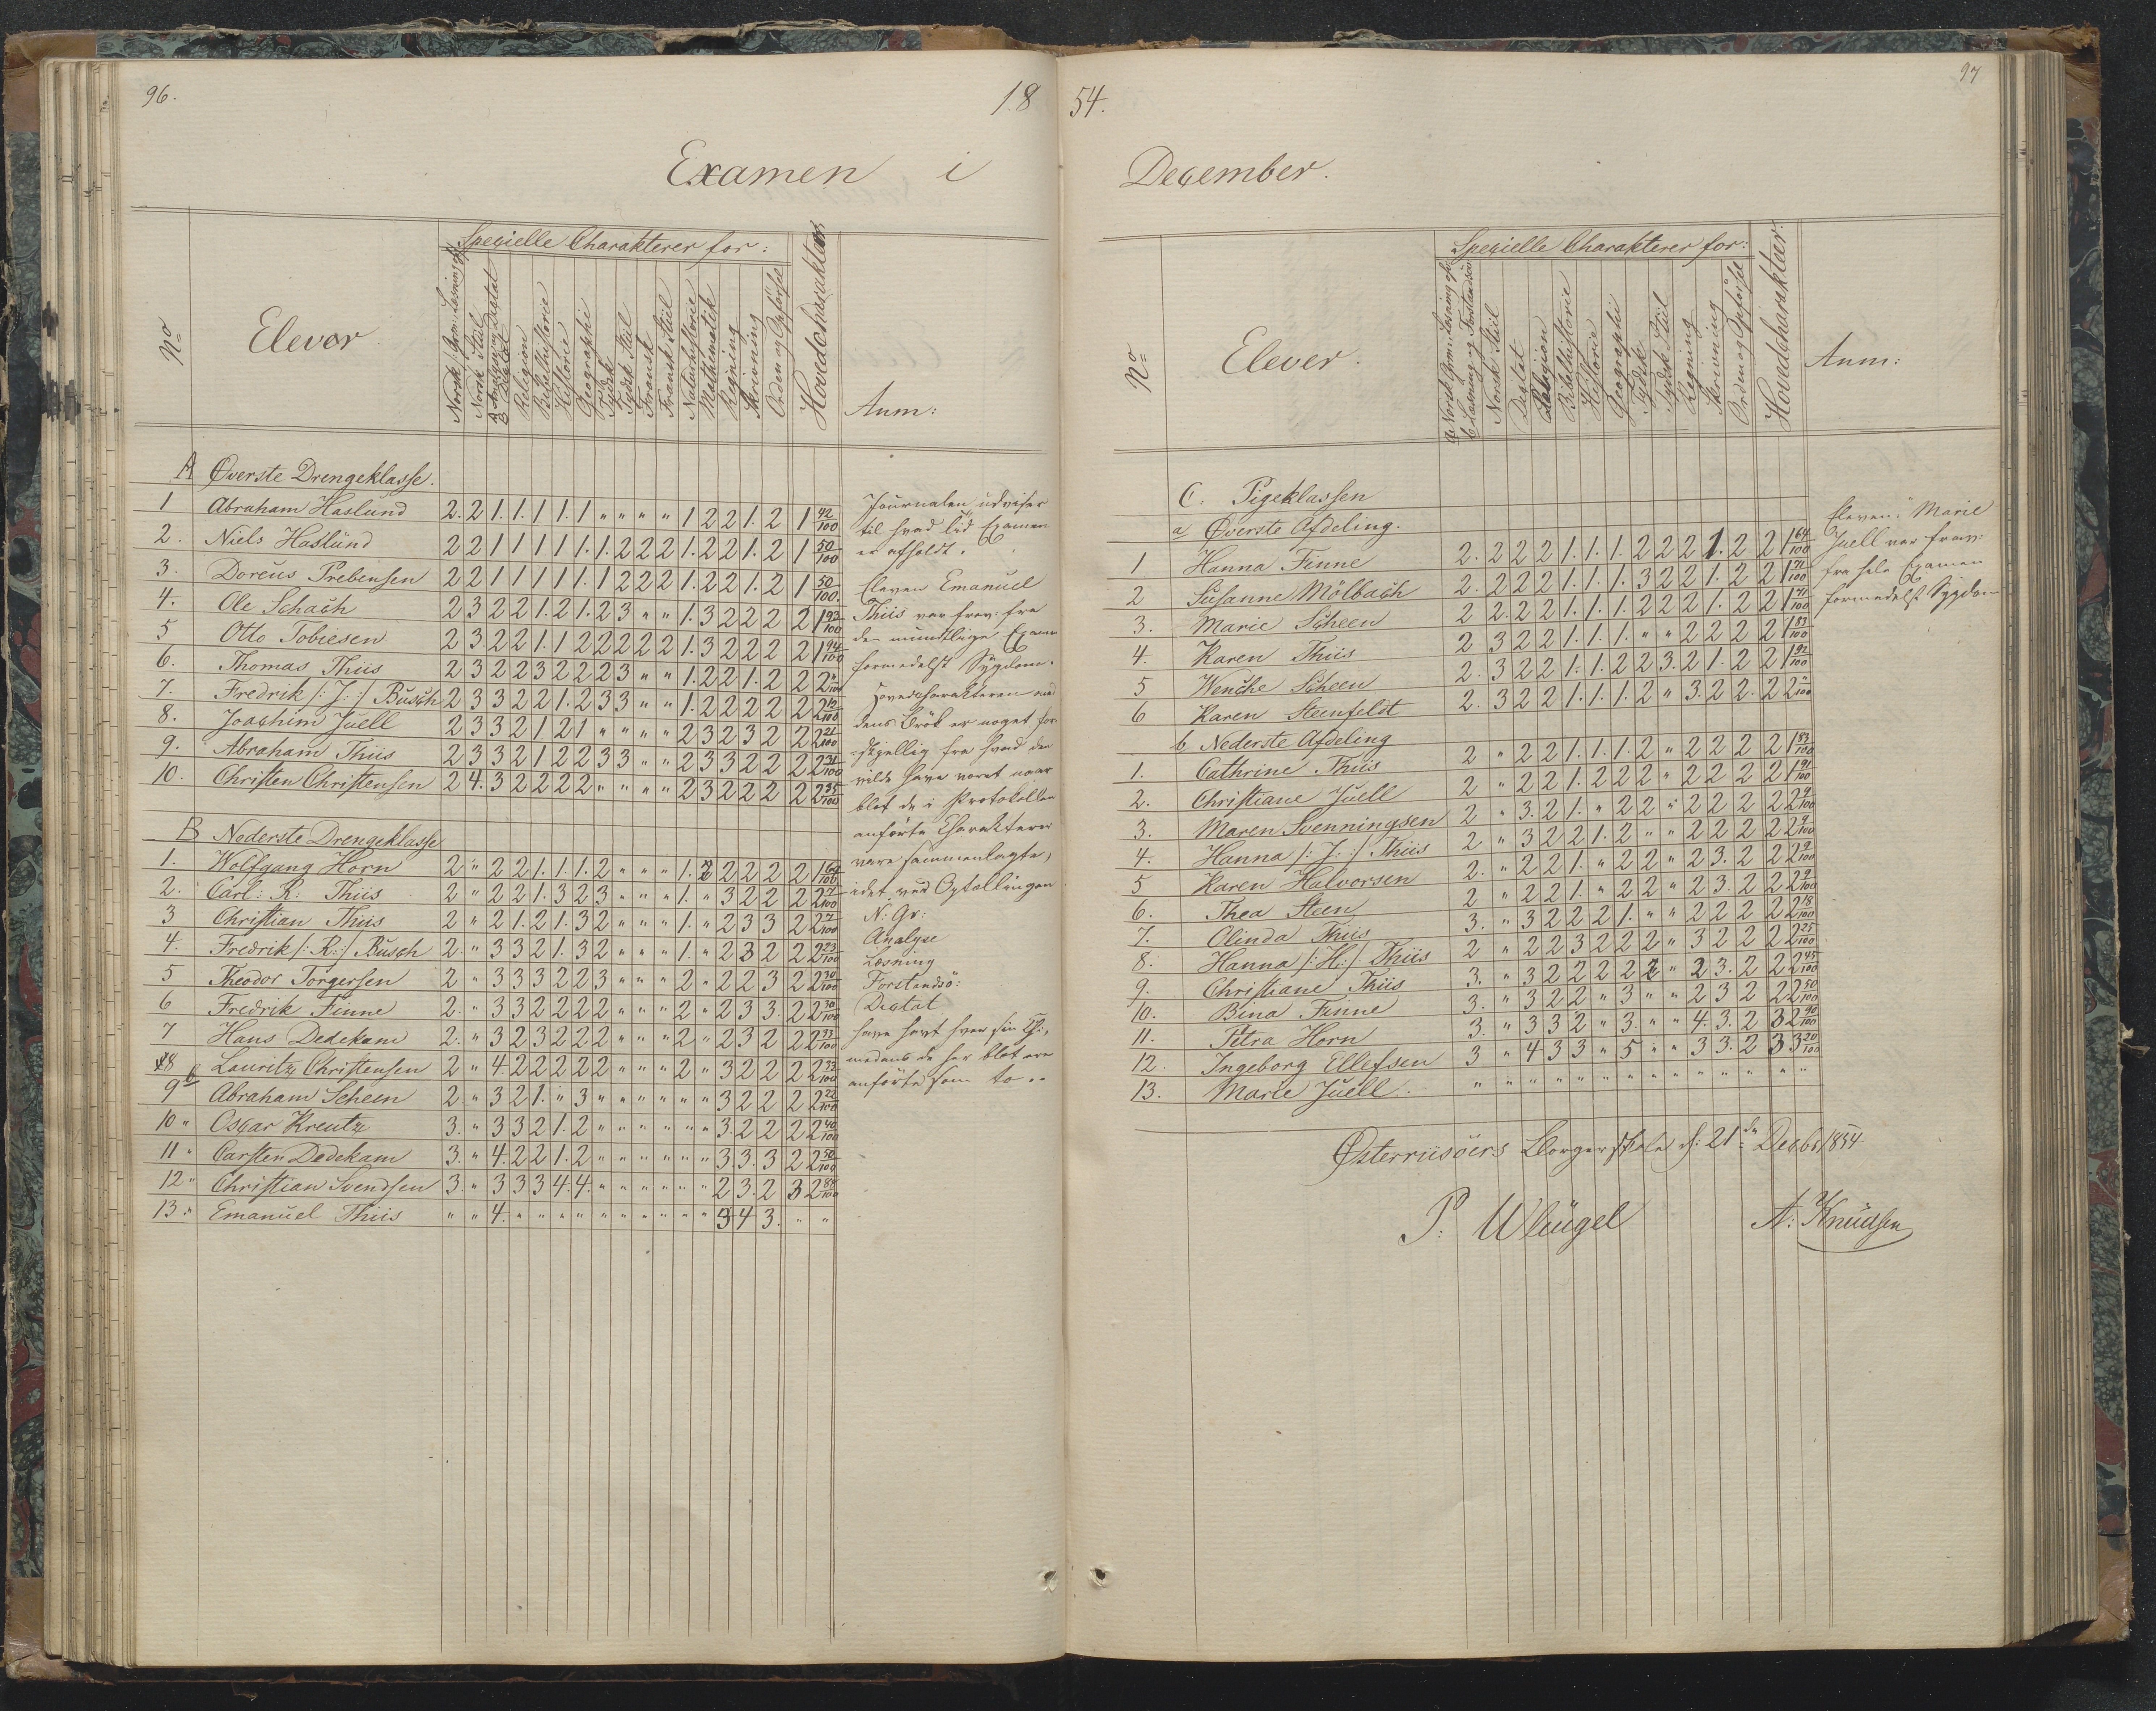 96.
18
Examen i
Specielle Charakterer for:
No
Elever
Norsk Stiil
Religion
Bibelhistorie
Historie
Geographi
Tydsk
Tydsk Stiil
Fransk
Fransk Stiil
Naturhistorie
Mathematik
Regning
Skrivning
Orden og Opførsel
Hovedcharakteer
Anm:
A Øverste Drengeklasse.
1 Abraham Haslund 2. 2 1. 1. 1 1. 1 " " " " 1 2 2 1. 2 1 42/100
2. Niels Haslund 2 2 1 1 1 1 1. 1. 2 2 2 1. 2 2 1. 2 1 50/100
3. Doreus Prebensen 2 2 1 1 1 1 1. 1 2 2 2 1. 2 2 1. 2 1 50/100.
4. Ole Schach 2 3 2 2 1. 2 1. 2 3 " " 1. 3 2 2 2 2 1 93/100
5 Otto Tobiesen 2 3. 2 2 1. 1 2 2 2 2 2 1. 3 2 2 2 2 1 94/100
6. Thomas Thiis 2 3 2 2 3 2 2 2 3 " " 1. 2 2 1. 2 2 2 "/100
7. Fredrik /: J: :/ Busch 2 3 3 2 2 1. 2 3 3 " " 1. 2 2 2 2 2 2 12/100
8. Joachim Juell 2 3 3 2 1 2 1 " " " " 2 3 2 3 2 2 2 21/100
9. Abraham Thiis 2 3 3 2 1 2 2 3 3 " " 2 3 3 2 2 2 2 31/100
10. Christen Christensen 2 4. 3 2 2 2 2 " " " " 2 3 2 2 2 2 2 35/100
B Nederste Drengeklasse
1. Wolfgang Horn 2 " 2 2 1. 1. 1. 2 " " " 1. 2 2 2 2 2 1
2. Carl: R: Thiis 2 " 2 2 1. 3 2 3 " " " 1. " 3 2 2 2 2 7/100
3 Christian Thiis 2 " 2 1. 2 1. 3 2 " " " 1. " 2 3 3 2 2 7/100
4. Fredrik /: R: :/ Busch 2. " 3 3 2 1. 3 2 " " " 1. " 2 3 2 2 2 23/100
5 Theodor Torgersen 2 " 3 3 3 2 2 3 " " " 2 " 2 2 3 2 2 30/100
6 Fredrik Finne 2. " 3 3 2 2 2 2 " " " 2 " 2 3 3. 2 2 30/100
7 Hans Dedekam 2. " 3 2 3 2 2 2 " " " 2 " 2 3 2 2 2 33/100
8 Lauritz Christensen 2 " 4 2 2 2 2 2 " " " 2 " 3 2 2 2 2 33/100
9 Abraham Scheen 2. " 3 2 1. " 3 " " " " " " 3 2 2 2 2 22/100
10 " Oscar Kreutz 3. " 3 3 2 1. 2 " " " " " " 3. 2 2 2 2 40/100
11 " Carsten Dedekam 3. " 4. 2 2 1. 2 " " " " " " 3. 3. 3 2 2 50/100
12 " Christian Svendsen 3. " 3 3 3 4. 4. " " " " " " 2 3. 2 3 2 84/100
13 " Emanuel Thiis " " 4. " " " " " " " " " " 3 4 3. " "
Journalen udviser
til hvad Tid Examen
er afholdt.
Eleven Emanuel
Thiis var frav: fra
den mundtlige Examen
formedelst Sygdom.
Hovedcharakteren med
dens Brök er noget for-
skjellig fra hvad den
vilde have været naar
blot de i Protokollen
anförte Charakterer
vare sammenlagte,
idet ved Optællingen
N: Gr:
Analyse
Læsning
Forstandsö:
Dictat
have havt hver sin Ch:,
medens de her blot ere
anförte som to. "
97
54.
December.
Specielle Charakterer for:
No
Elever.
Norsk Stiil
Dictat
Religion
Bibelhistorie
Historie
Geographi
Tydsk
Tydsk Stiil
Regning
Skrivning
Orden og Opførsel
Hovedcharakteer.
Anm:
C. Pigeklassen
a Øverste Afdeling.
1 Hanna Finne 2. 2 2 2 1. 1. 1. 2 2 2 1. 2 2 1 64/100
2 Susanne Mölbach 2. 2 2 2 1. 1. 1. 3 2 2 1. 2 2 1 71/100
3. Marie Scheen 2 2. 2 2 1. 1. 1. 2 2 2 1. 2 2 1 71/100
4. Karen Thiis 2 3 2 2 1. 1. 1. " " 2 2 2 2 1 83/100
5 Wenche Scheen 2. 3 2 2 1. 1. 2 2 3. 2 1. 2 2 1 92/100
6 Karen Steenfeldt 2. 3 2 2 1. 1. 1. 2 " 3. 2 2. 2 2 "/100
b Nederste Afdeling
1. Cathrine Thiis 2 " 2 2 1. 1. 1. 2 " 2 2 2 2 1 83/100
2. Christiane Juell 2 " 2 2 1. 2 2 2 " 2 2 2 2 1 91/100
3. Maren Svenningsen 2 " 3. 2 1. " 2 2 " 2 2 2 2 2 9/100
4. Hanna /: J: :/ Thiis 2 " 3 2 2 1. 2 " " 2 2 2 2 2 9/100
5 Karen Halvorsen 2. " 2 2 1. " 2 2 " 2 3. 2 2 2 9/100
6. Thea Steen 2 " 2 2 1. " 2 2 " 2 3. 2 2 2 9/100
7. Olinda Thiis 3. " 3 2 2 2 1. " " 2 2 2 2 2 18/100
8. Hanna /: H: :/ Thiis 2 " 2 2 3 2 2 2 " 3 2 2 2 2 25/100
9. Christiane Thiis 3. " 3 2 2 2 2 2 " 2 3. 2 2 2 45/100
10. Bina Finne 3. " 3 2 2 " 3 " " 2 3 2 2 2 50/100
11. Petra Horn 3. " 3 3 2 " 3. " " 4. 3. 2 3 2 90/100
12. Ingeborg Ellefsen 3 " 4 3 3 " 5 " " 3 3. 2 3 3 20/100
13. Marie Juell. " " " " " " " " " " " " " "
Eleven: Marie
Juell var frav:
fra hele Examen
formedelst Sygdom
Østerriisöers Borgerskole d: 21de Decbr 1854
P. Wleügel A: Knudsen